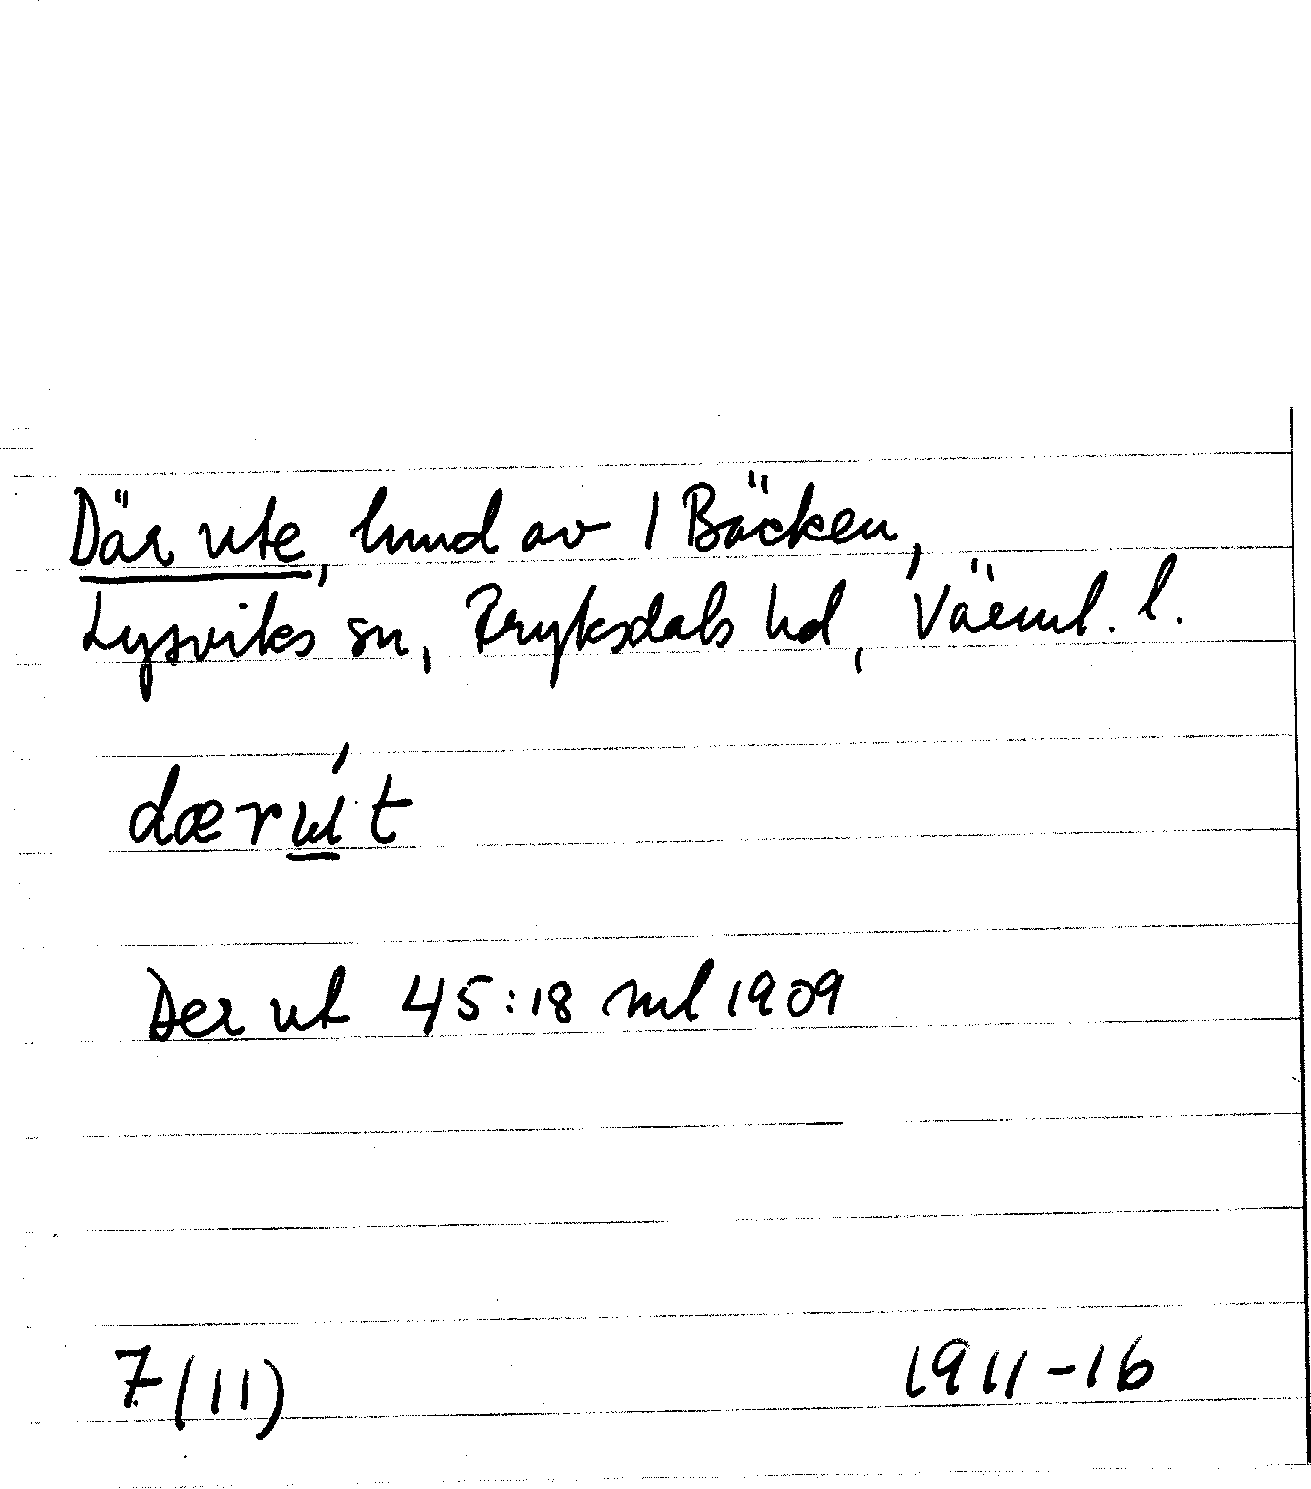 Där ute, lund av 1 Bäcken,
Lysviks sn, Fryksdals hd, Värml. l.
dærút
Der ut 45:18 ml 1909
7(11) 1911-16